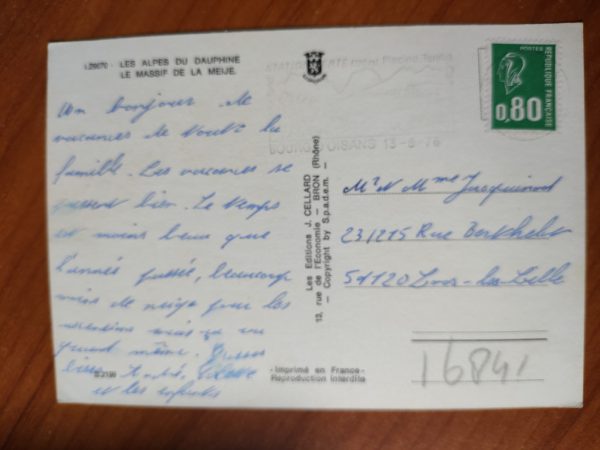 L29070 - LES ALPES DU DAUPHINE
LE MASSIF DE LA MEIJE.
Un bonjour de
vacances de toute la
famille. Les vacances se
passent bien. Le temps
est moins beau que
l'année passée, beaucoup
moins de neige pour les
mais ça va
quand même. Grosses
bises André,
et les enfants
S 2039
Les Editions J. CELLARD
13, rue de l'Economie - BRON (Rhône)
- Copyright by S.p.a.d.e.m. -
- Imprimé en France -
Reproduction interdite
BOURG D'OISANS 13-8-76
POSTES
REPUBLIQUE FRANÇAISE
0,80
Mr Mme Jacquinod
23/215 Rue Berthelot
59120 Loos-lez-Lille
16841